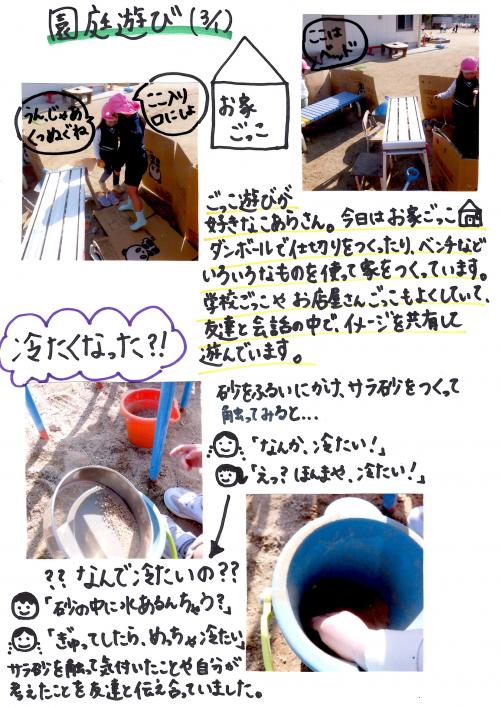 園庭遊び(3/1)
お家
ごっこ
ここは
ベッド
うん、じゃあ
くつぬぐね
ここ入り
口にしよ
ごっこ遊びが
好きなこあらさん。今日はお家ごっこ
ダンボールで仕切りをつくったり、ベンチなど
いろいろなものを使って家をつくっています。
学校ごっこや お店屋さんごっこもよくしていて、
友達と会話の中で、イメージを共有して
遊んでいます。
冷たくなった?!
砂をふるいにかけ、サラ砂をつくって
触ってみると…
「なんか、冷たい!」
「えっ?ほんまや、冷たい!」
??なんで冷たいの??
「砂の中に水あるんちゃう?」
「ぎゅってしたら、めっちゃ冷たい」
サラ砂を触って気付いたことや自分が
考えたことを友達と伝え合っていました。